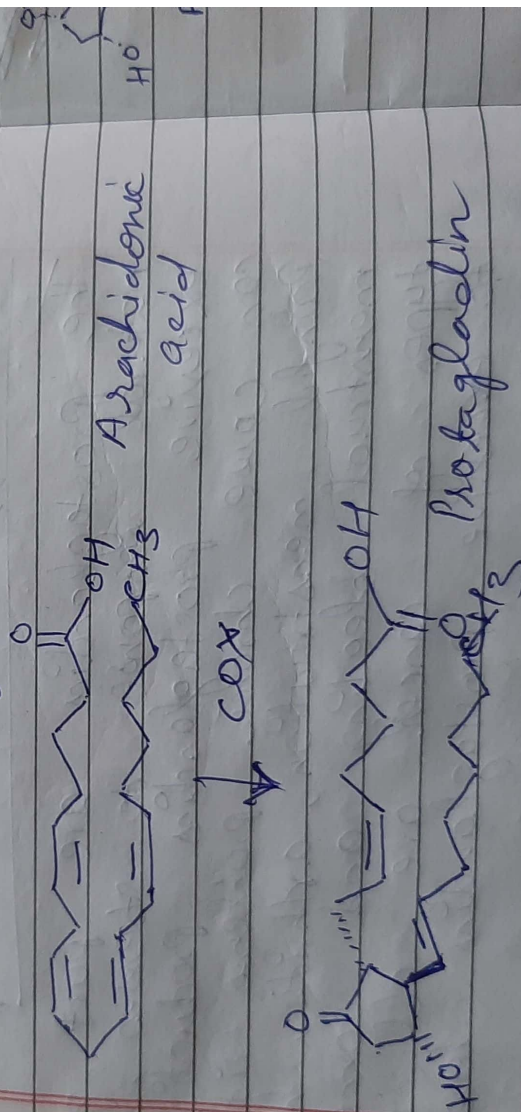 O
OH
CH3
Arachidonic
acid
COX
O
OH
O
HO
Prostagladin
HO